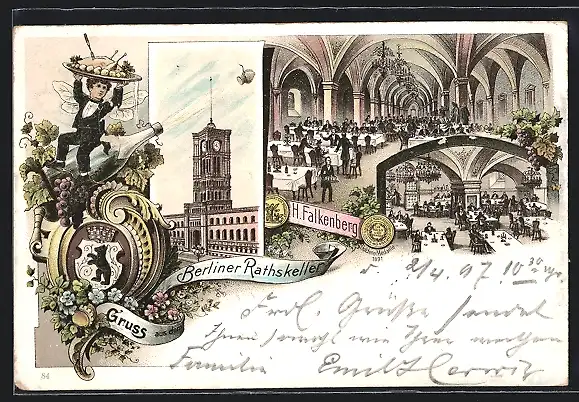 H. Falkenberg
1897
Berliner Rathskeller
Gruss aus dem
2/4 97 10 30
Frdl. Grüße sendet
Ihnen sowohl wie Ihrer werthen
Familie Emil
84